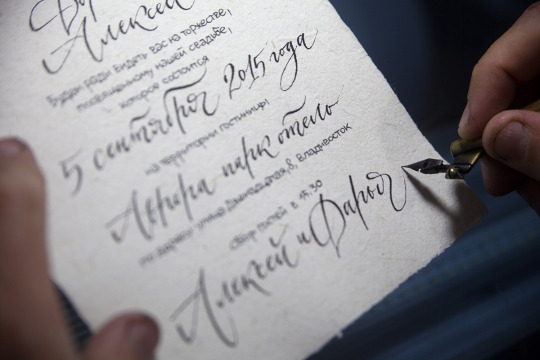 Алексей
Будем рады видеть вас на торжестве,
посвященному нашей свадьбе,
которое состоится
5 сентября 2015 года
на территории гостиницы
Аврора парк отель
по адресу: улица Двенадцатая, 8, Владивосток
сбор гостей в 15.30
Алексей и Дарья